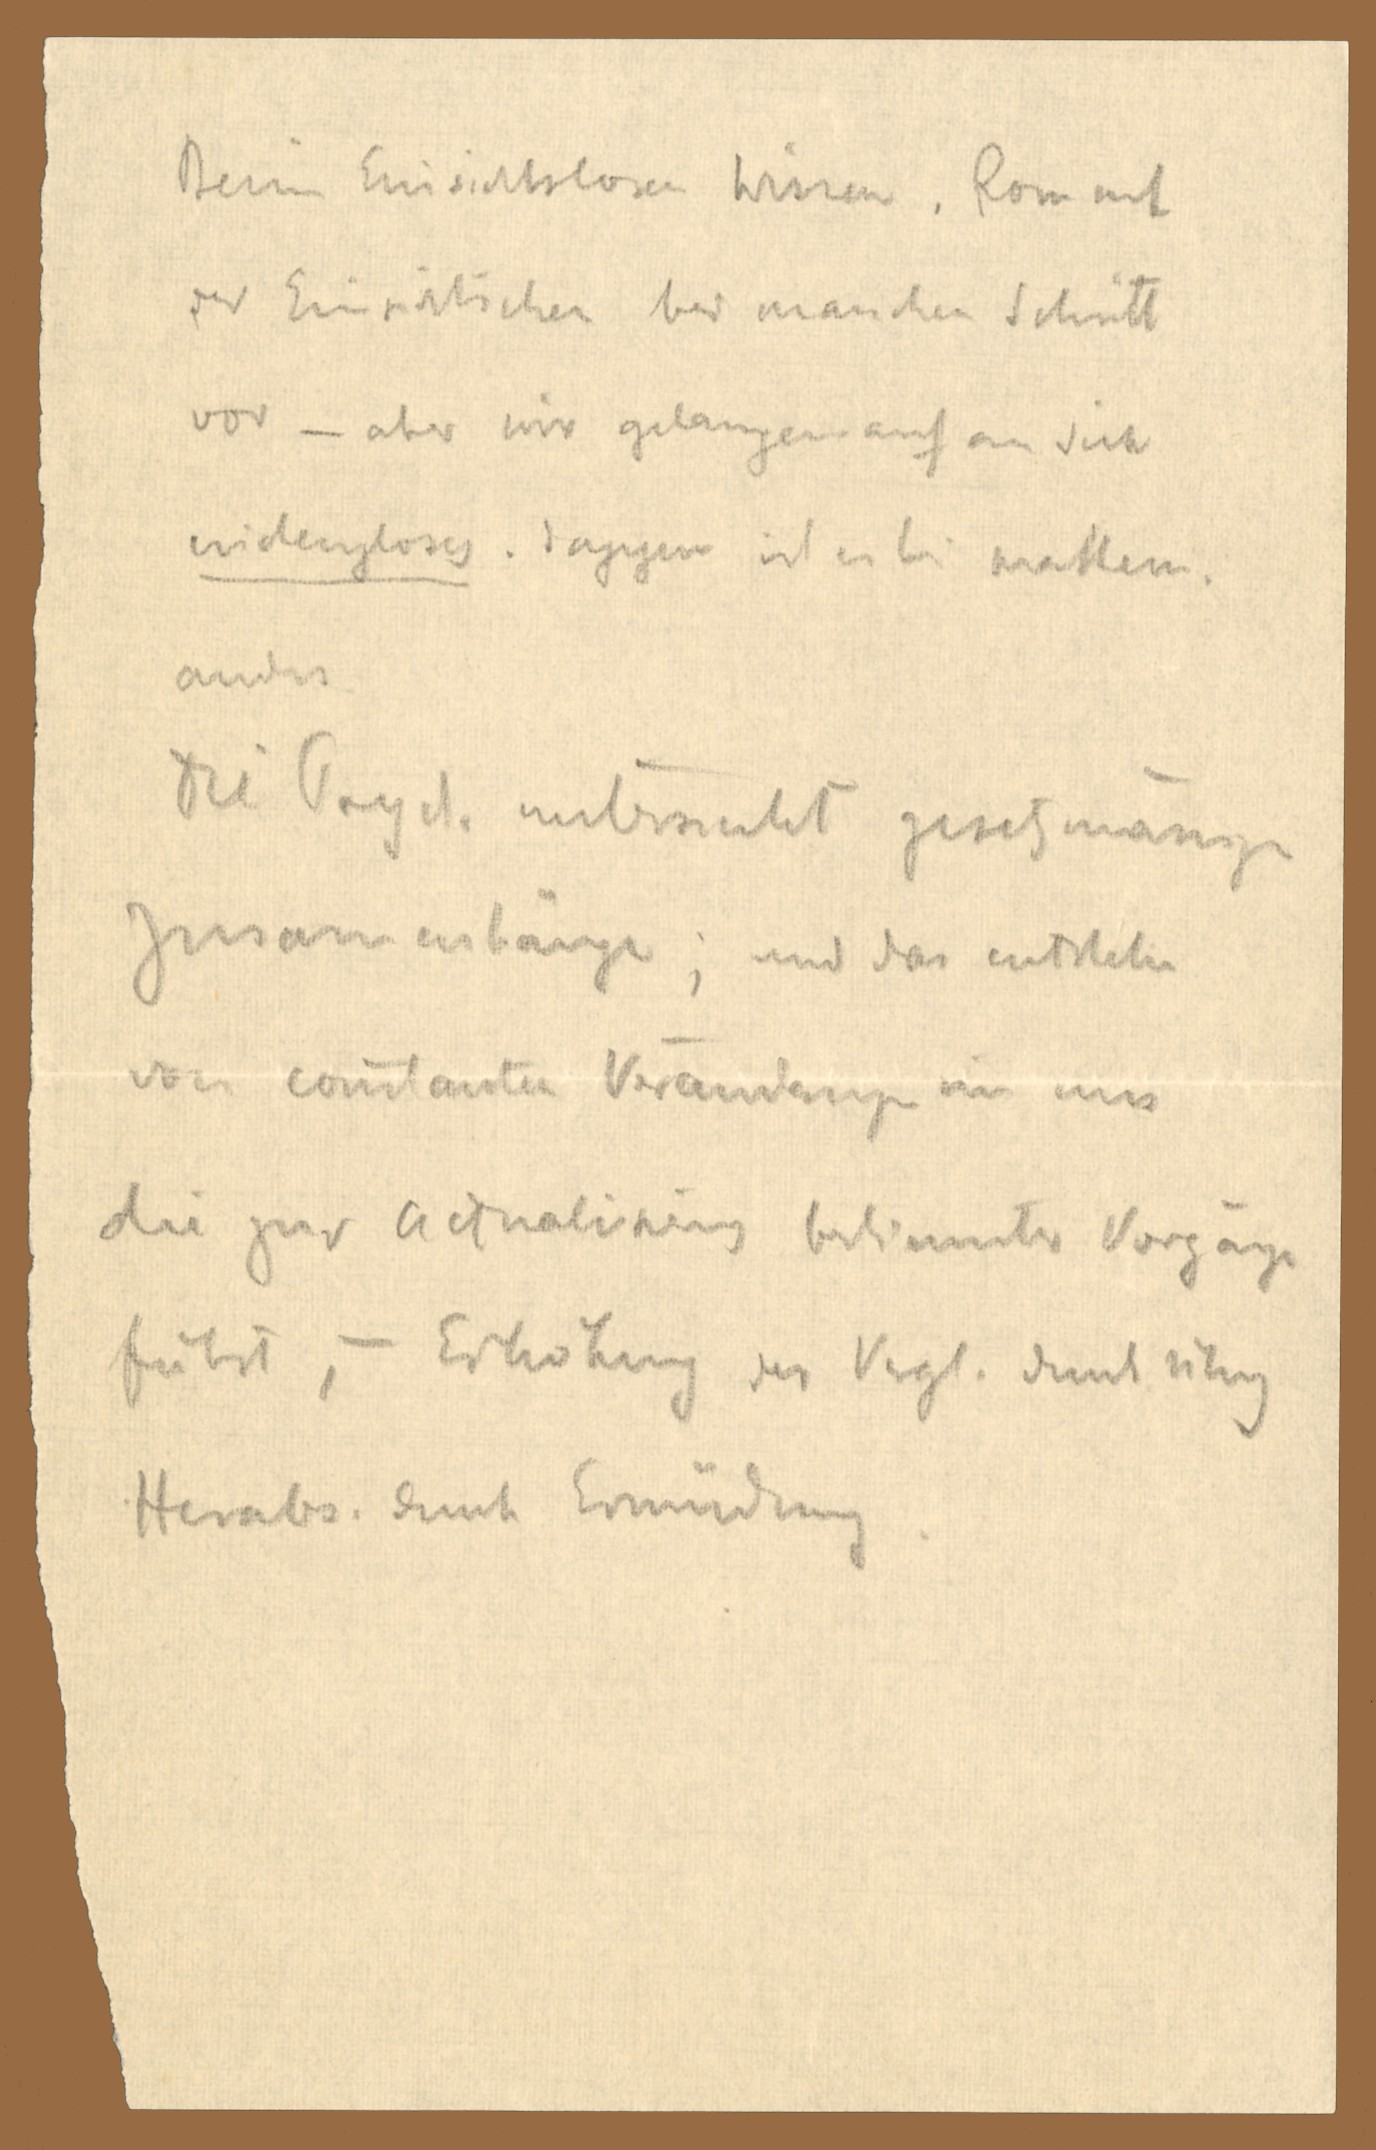 Beim Einsichtslosen Wissen, kommt
der Einsichtlichen bei manchen Schritt
vor – aber wir gelangen auf an sich
evidenzloses. Dagegen ist es bei mathem.
anders
Die Psych. untersucht gesetzmässige
Zusammenhänge; und das entstehen
von constanten Veränderungen in uns
die zur Actualisirung bestimmter Vorgänge
führt, – Erhöhung der durch
Herabs. durch Ermüdung.